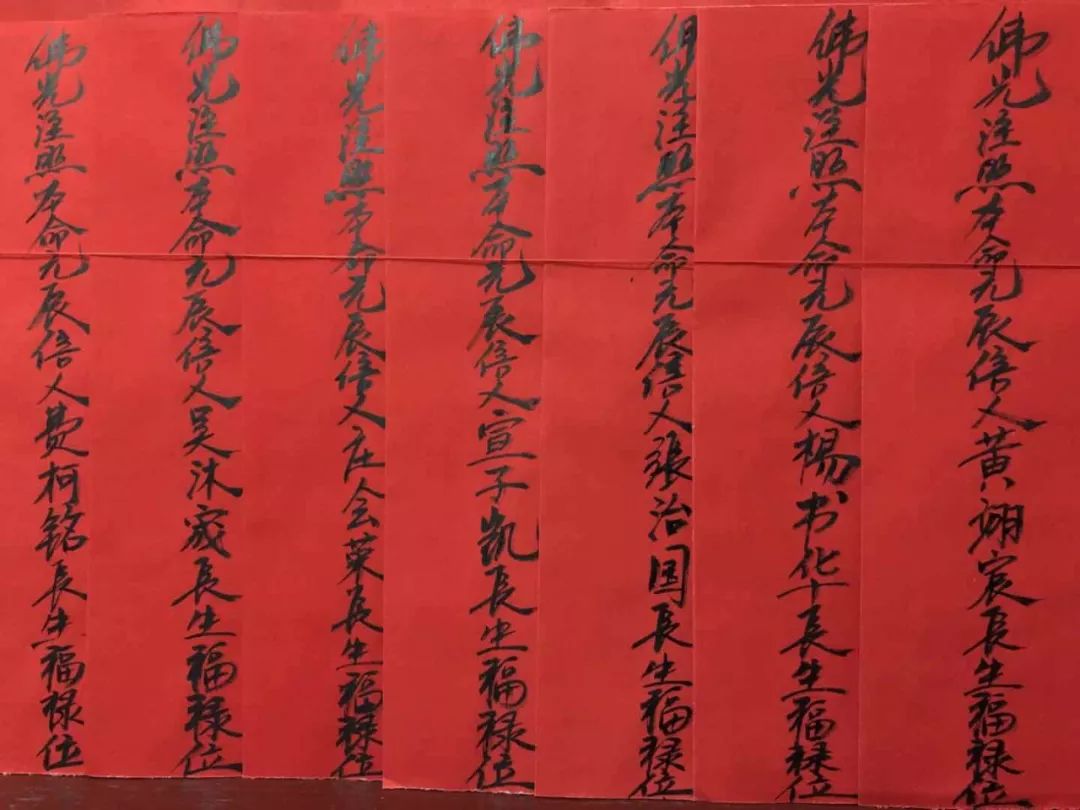 佛光注照本命元辰信人黄翊宸長生福禄位
佛光注照本命元辰信人楊书华長生福禄位
佛光注照本命元辰信人張治国長生福禄位
佛光注照本命元辰信人宣子凯長生福禄位
佛光注照本命元辰信人庄会菜長生福禄位
佛光注照本命元辰信人吴沐宬長生福禄位
佛光注照本命元辰信人费柯铭長生福禄位